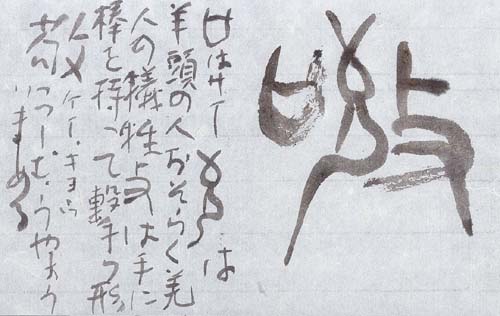 はサイ は
羊頭の人おそらく羌
人の犠牲攴は手に
棒を持って撃つ形
敬 ケイ.キョウ
つつしむ.うやまう
いましめる